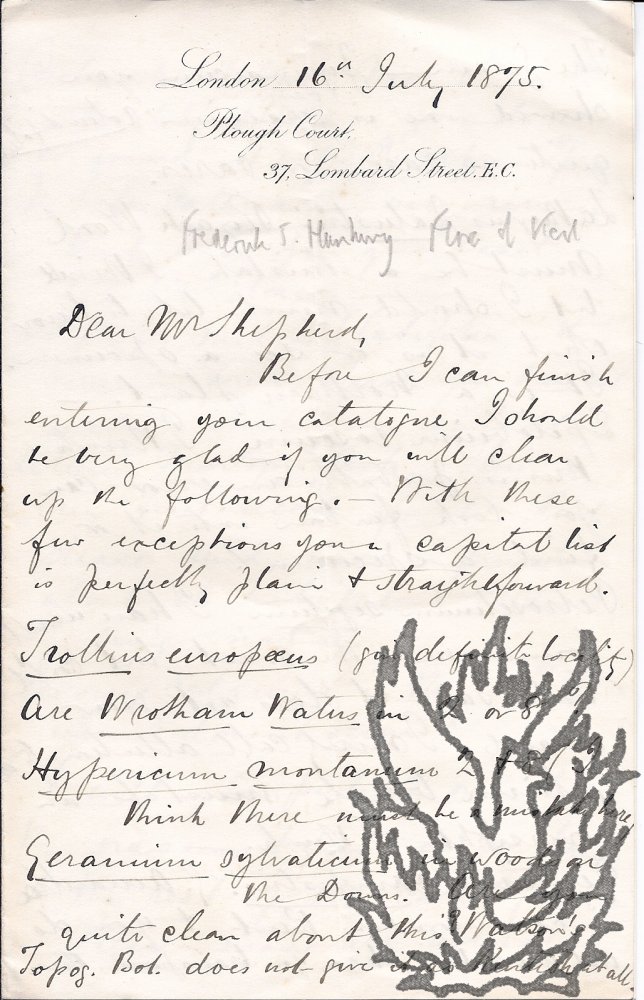 London 16th July 1875.
Plough Court,
37, Lombard Street, E.C.
Frederick J. Hanbury Flora of Kent
Dear Mr Shepherd,
Before I can finish
entering your catalogue I should
be very glad if you will clear
up the following. — With these
few exceptions your capital list
is perfectly plain & straightforward.
Trollius europæus (give definite locality)
Are Wrotham Waters in 2 or 8
Hypericum montanum 2 & 8
think there must be a mistake here,
Geranium sylvaticum in woods on
the Downs. Are you
quite clear about this? Watson's
Topog. Bot. does not give it as Kentish at all.